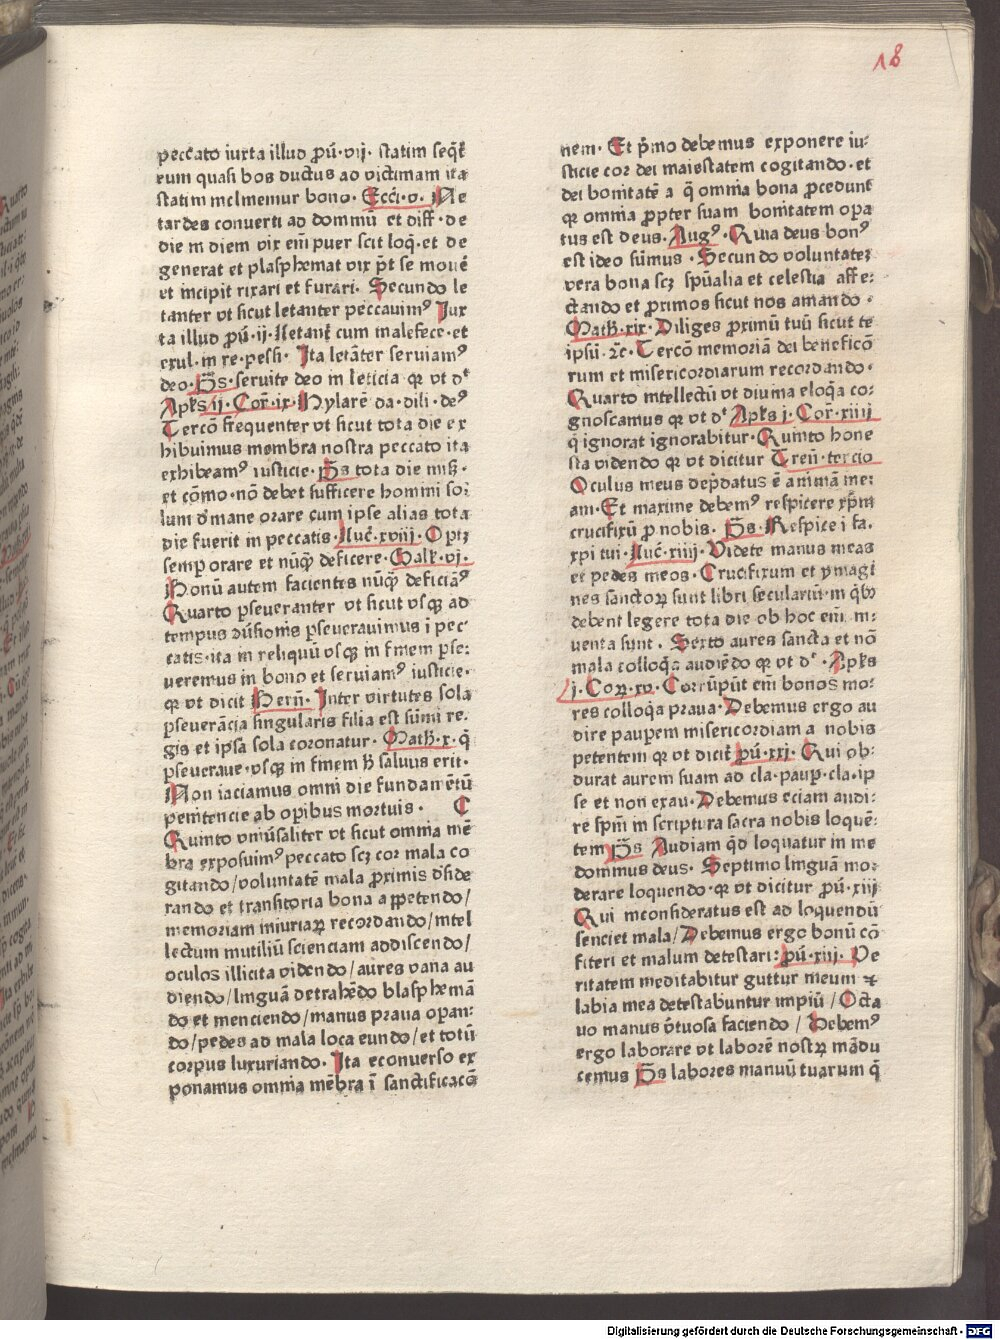 18
peccato iuxta illud ꝓū·vij· statim seqͣ̄t̄
eum quasi bos ductus ad victimam ita
statim inclinemur bono· Eccī·v· Ne
tardes converti ad dominū et diff·de
die in diem vix em̄ puer scit loq̄·et de
generat et plasphemat vix p̄t se mouē
et incipit rixari et furari· Secundo le
tanter vt sicut letanter peccauimꝰ Jux
ta illud ꝓū·ij·Letant̄ cum malefece·et
exul·in re·pessi· Ita letāter seruiamꝰ
deo·p̄s·seruite deo in leticia qꝛ vt dʳ
Apl̄s ij·Cor̄·ix·Hylarē da·dili·deꝰ
Tercō frequenter vt sicut tota die ex
hibuimus membra nostra peccato ita
exhibeamꝰ iusticie·p̄s tota die miß·
et cōmo·nō debet sufficere homini so⸗
lum d mane orare cum ipse alias tota
die fuerit in peccatis·Luc̄·xviij·Optꝫ
semp orare et nūqͣ deficere·Galt̄·vj·
Bonū autem facientes nūqͣ deficiāꝰ
Quarto pseueranter vt sicut vsqꝫ ad
tempus dūsionis pseuerauimus ī pec
catis·ita in reliquū vsqꝫ in finem pse⸗
ueremus in bono et seruiamꝰ iusticie·
qꝛ vt dicit Bern̄·Inter virtutes sola
pseverācia singularis filia est sūmi re·
gis et ipsa sola coronatur·Math̄·x·q̄
pseverave·vsqꝫ in finem h̄ saluus erit·
Non iaciamus omni die fundamētū
penitencie ab opibus mortuis· C
Quinto vniūsaliter vt sicut omnia mē
bra exposuimꝰ peccato scꝫ cor mala co
gitando/voluntatē mala ꝓximis dside
rando et transitoria bona appetendo/
memoriam iniuriaꝝ recordando/intel
lectum mutiliū scienciam addiscendo/
oculos illicita videndo/aures vana au
diendo/linguā detrahēdo blasphemā
do et menciendo/manus praua opan⸗
do/pedes ad mala loca eundo/et totū
corpus luxuriando·Ita econuerso ex
ponamus omnia mēbra ī sanctificacō
nem·Et p̄mo debemus exponere iu⸗
sticie cor dei maiestatem cogitando·et
dei bonitatē a q̄ omnia bona ꝓcedunt
qꝛ omnia ꝓpter suam bonitatem opa
tus est deus·Augꝰ·Quia deus bonꝰ
est ideo sūmus·Secundo voluntateꝫ
vera bona scꝫ spūalia et celestia affe⸗
ctando et ꝓximos sicut nos amando·
Math̄·xix·Diliges ꝓximū tuū sicut te
ipsū·ꝛc·Tercō memoriā dei beneficō
rum et misericordiarum recordando·
Quarto intellectū vt diuina eloq̄a co⸗
gnoscamus qꝛ vt dʳ Apl̄s j·Cor̄·xiiij
q̄ ignorat ignorabitur·Quinto hone
sta videndo qꝛ vt dicitur Tren̄·tercio
Oculus meus dep̄datus ē animā me⸗
am·Et maxime debemꝰ respicere xp̄m
crucifixū ꝓ nobis·p̄s·Respice ī fa·
xpi tui·Luc̄·xiiij·Videte manus meas
et pedes meos·Crucifixum et ymagi
nes sanctoꝝ sunt libri seculariū·in qͥbꝫ
debent legere tota die ob hoc em̄ in⸗
uenta sunt·Sexto aures sancta et nō
mala colloq̄a audiēdo qꝛ vt dʳ·Apl̄s
j·Coꝝ·xv·Corrūpūt em̄ bonos mo⸗
res colloq̄a praua·Debemus ergo au
dire paupem misericordiam a nobis
petentem qꝛ vt dicit̄ ꝓū·xxj·Qui ob⸗
durat aurem suam ad cla·paup·cla·ip
se et non exau·Debemus eciam audi⸗
re sp̄m in scriptura sacra nobis loquē⸗
tem p̄s Audiam qͥd loquatur in me
dominus deus·Septimo linguam mo⸗
derare loquendo·qꝛ vt dicitur ꝓū·xiij
Qui inconsideratus est ad loquendū
senciet mala/Debemus ergo bonū cō
fiteri et malum detestari⸗ꝓū·xiij·Ve
ritatem meditabitur guttur meum ⁊
labia mea detestabuntur impiū/Octa
uo manus p̄tuosa faciendo/Debemꝰ
ergo laborare vt laborē nostꝝ mādu
cemus p̄s labores manuū tuarum q̄
Digitalisierung gefördert durch die Deutsche Forschungsgemeinschaft - DFG